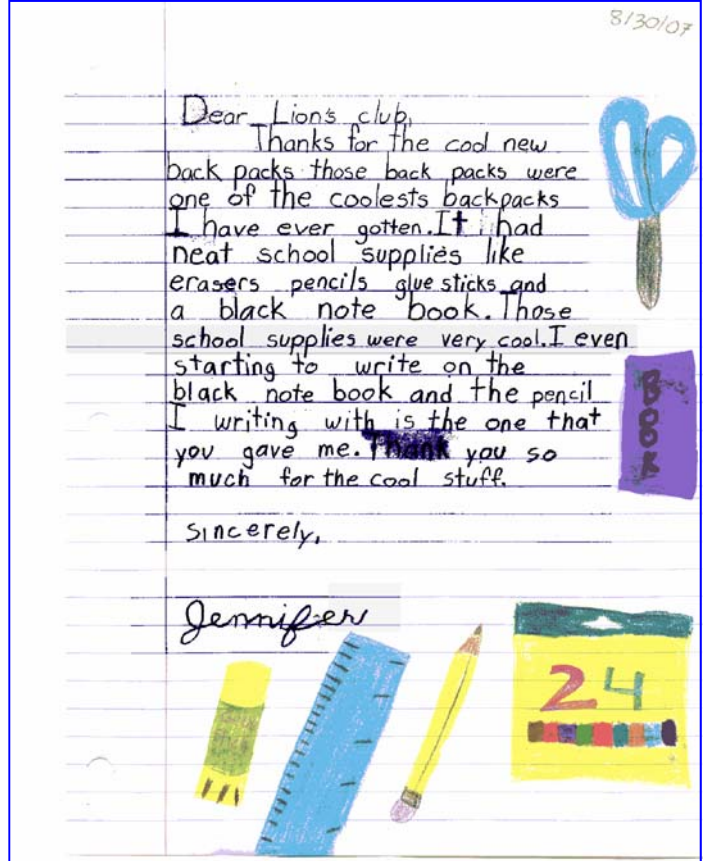 8/30/07
Dear Lion's club,
Thanks for the cool new
back packs those back packs were
one of the coolests backpacks
I have ever gotten. It had
neat school supplies like
erasers pencils glue sticks and
a black note book. Those
school supplies were very cool. I even
starting to write on the
black note book and the pencil
I writing with is the one that
you gave me. Thank you so
much for the cool stuff.
Sincerely,
Jennifer
BOOK
24